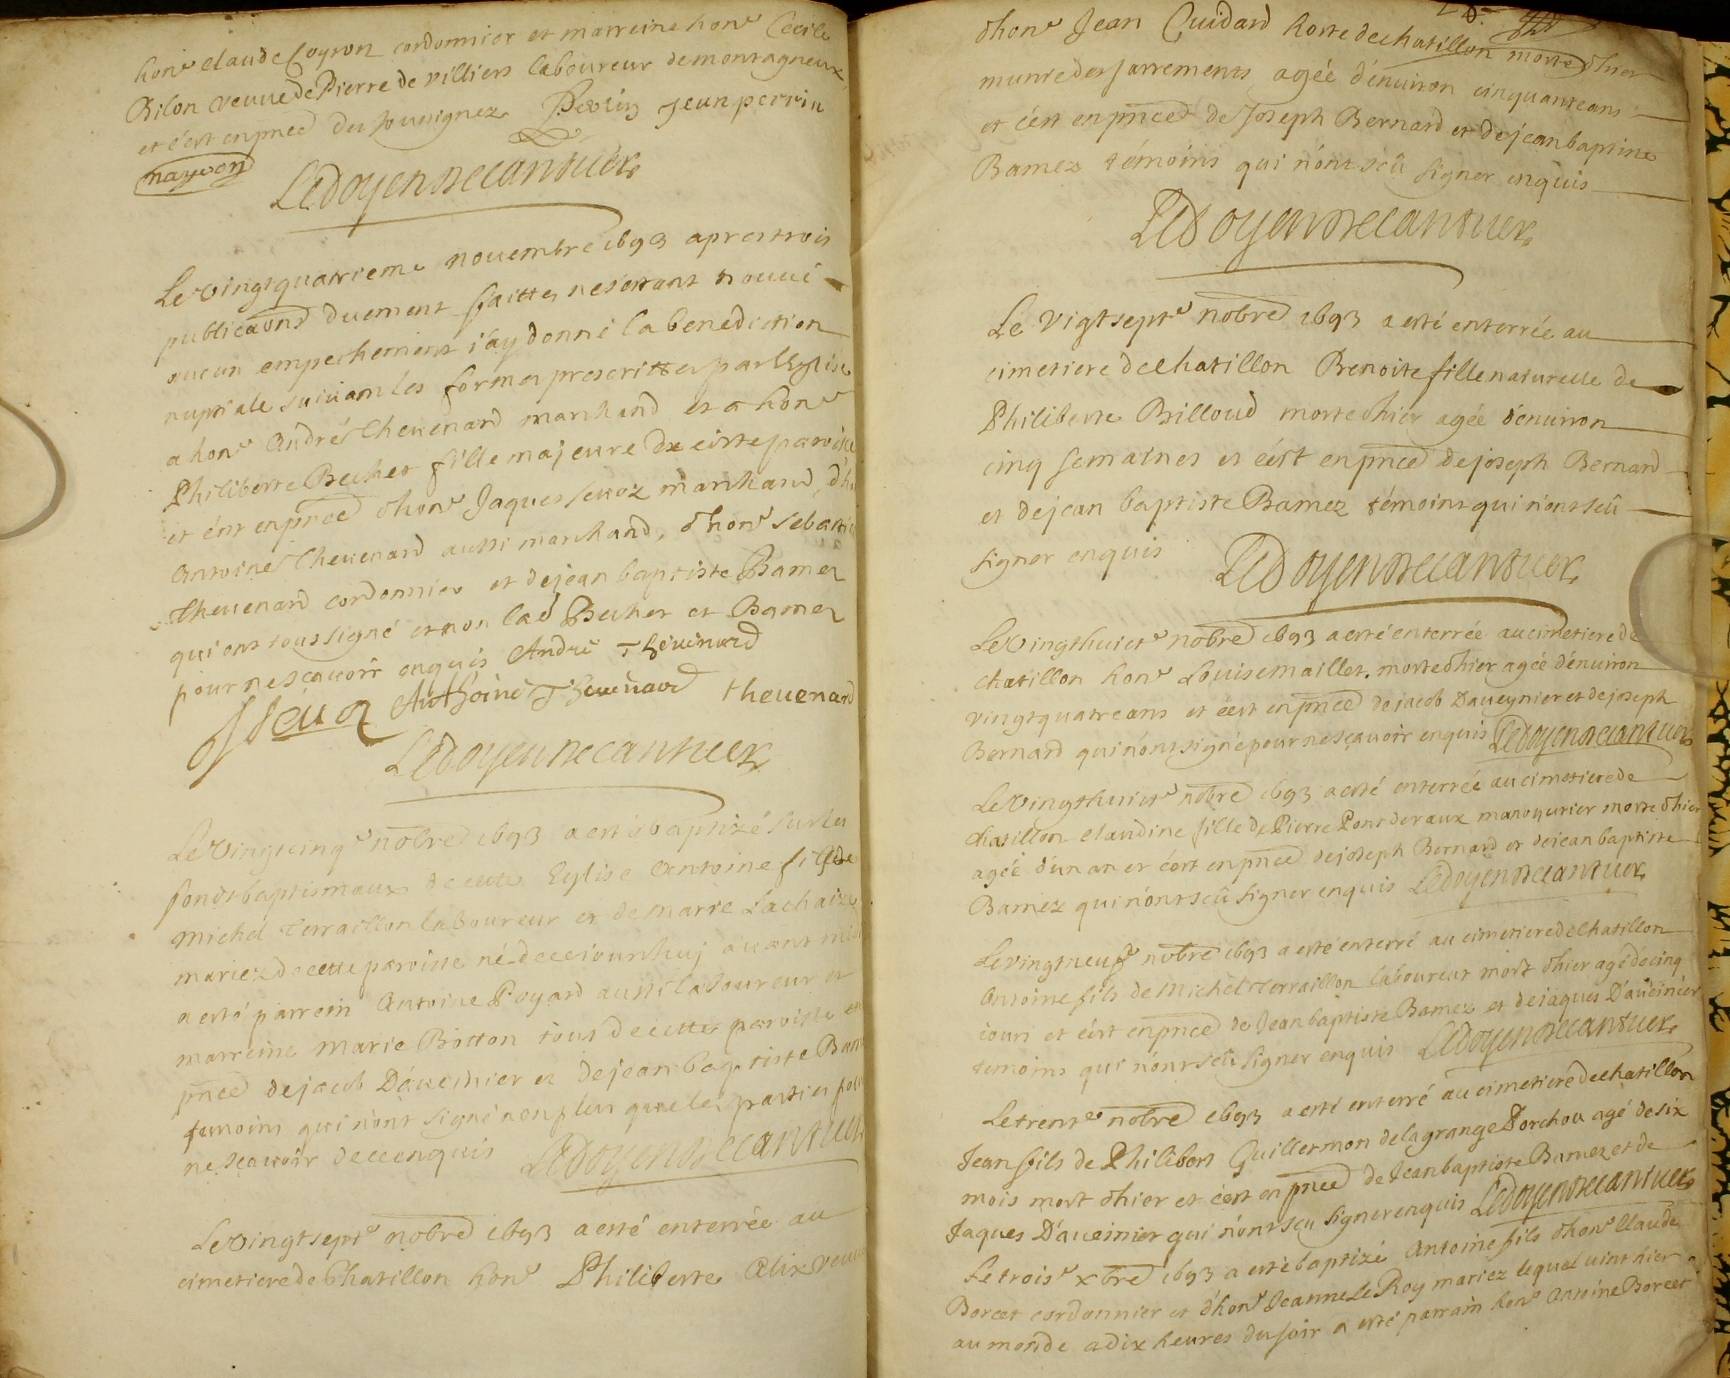 hon.e claude Coyron cordonnier et marreine hon.e Cecile
Bilon veuve de Pierre de villiers laboureur de montagneux
et c'est en pñce des soussignez Perrin jean perrin
nayron
Le doyen Decantuer
Le Vingt quatrieme novembre 1693 apres trois
publica͠ons duement faittes ne s'estant trouvé
aucun empechement j'ay donné la benediction
nuptiale suivam les formes prescrittes par l'Eglise
a hon.e André Thevenard marchand et a hon.e
Philiberte Becher fille majeure de cette paroisse
et c'est en pñce d'hon.e Jaques sevoz marchand, d'ho
Antoine Thevenard aussi marchand, d'hon.e sebasti
Thevenard cordonnier et de jean baptiste Bamez
qui ont tous signé et non lad Becher et Bamez
pour ne sçavoir enquis André Thevenard
Anthoine Thevenard thevenard
Le doyen Decantuer
Le Vingt cinq.e nobre 1693 a esté baptizé sur les
fonds baptismaux de cette Eglise Antoine fils de
Michel Terraillon laboureur et de marie Lachaize
mariez de cette paroisse né de ce jourdhuj avant mi
a esté parrein Antoine Poyard aussi laboureur et
marreine Marie Botton tous de cette paroisse en
pñce de jacob Daveinier et de jean baptiste Bam
temoins qui n'ont signé non plus que les parties pour
ne sçavoir de ce enquis Le doyen Decantuer
Le Vingt sept.e nobre 1693 a esté enterrée au
cimetiere de Chatillon hon.e Philiberte Alix veuve
d'hon.e Jean Cuidard hoste de chatillon morte d'hier
munie des sacrements agée d'environ cinquante ans
et c'est en pñce de Joseph Bernard et de jean baptiste
Bamez témoins qui n'ont sçû signer enquis
Le Doyen Decantuer
Le Vigt sept.e nobre 1693 a esté enterrée au
cimetiere de Chatillon Benoite fille naturelle de
Philiberte Billoud morte d'hier agée d'environ
cinq semaines et c'est en pñce de joseph Bernard
et de jean baptiste Bamez témoins qui n'ont sçû
signer enquis Le Doyen Decantuer
Le Vingt huict.e nobre 1693 a esté enterrée au cimetiere de
chatillon hon.e Louise Maillet morte d'hier agée d'environ
vingt quatre ans et c'est en pñce de jacob Daveynier et de joseph
Bernard qui n'ont signé pour ne sçavoir enquis Le doyen Decantuer
Le Vingt huict.e nobre 1693 a esté enterrée au cimetiere de
chatillon claudine fille de Pierre Pont de vaux manouvrier morte d'hier
agée d'un an et c'est en pñce de joseph Bernard et de jean baptiste
Bamez qui n'ont sçû signer enquis Le doyen Decantuer
Le vingt neuf.e nobre 1693 a esté enterré au cimetiere de chatillon
Antoine fils de Michel Terraillon laboureur mort d'hier agé de cinq
jours et c'est en pñce de Jean baptiste Bamez et de jaques Daveinier
temoins qui n'ont sçû signer enquis Le doyen Decantuer
Le trent.e nobre 1693 a esté enterré au cimetiere de chatillon
Jean fils de Philibert Guillermon de la grange Porchou agé de six
mois mort d'hier et c'est en pñce de Jean baptiste Bamez et de
Jaques Daveinier qui n'ont sçu signer enquis Le doyen Decantuer
Le trois.e xbre 1693 a esté baptizé Antoine fils d'hon.e Claude
Borcet cordonnier et d'hon.e Jeanne Le Roy mariez lequel vint hier
au monde a dix heures du soir a esté parrain hon.e Antoine Borcet